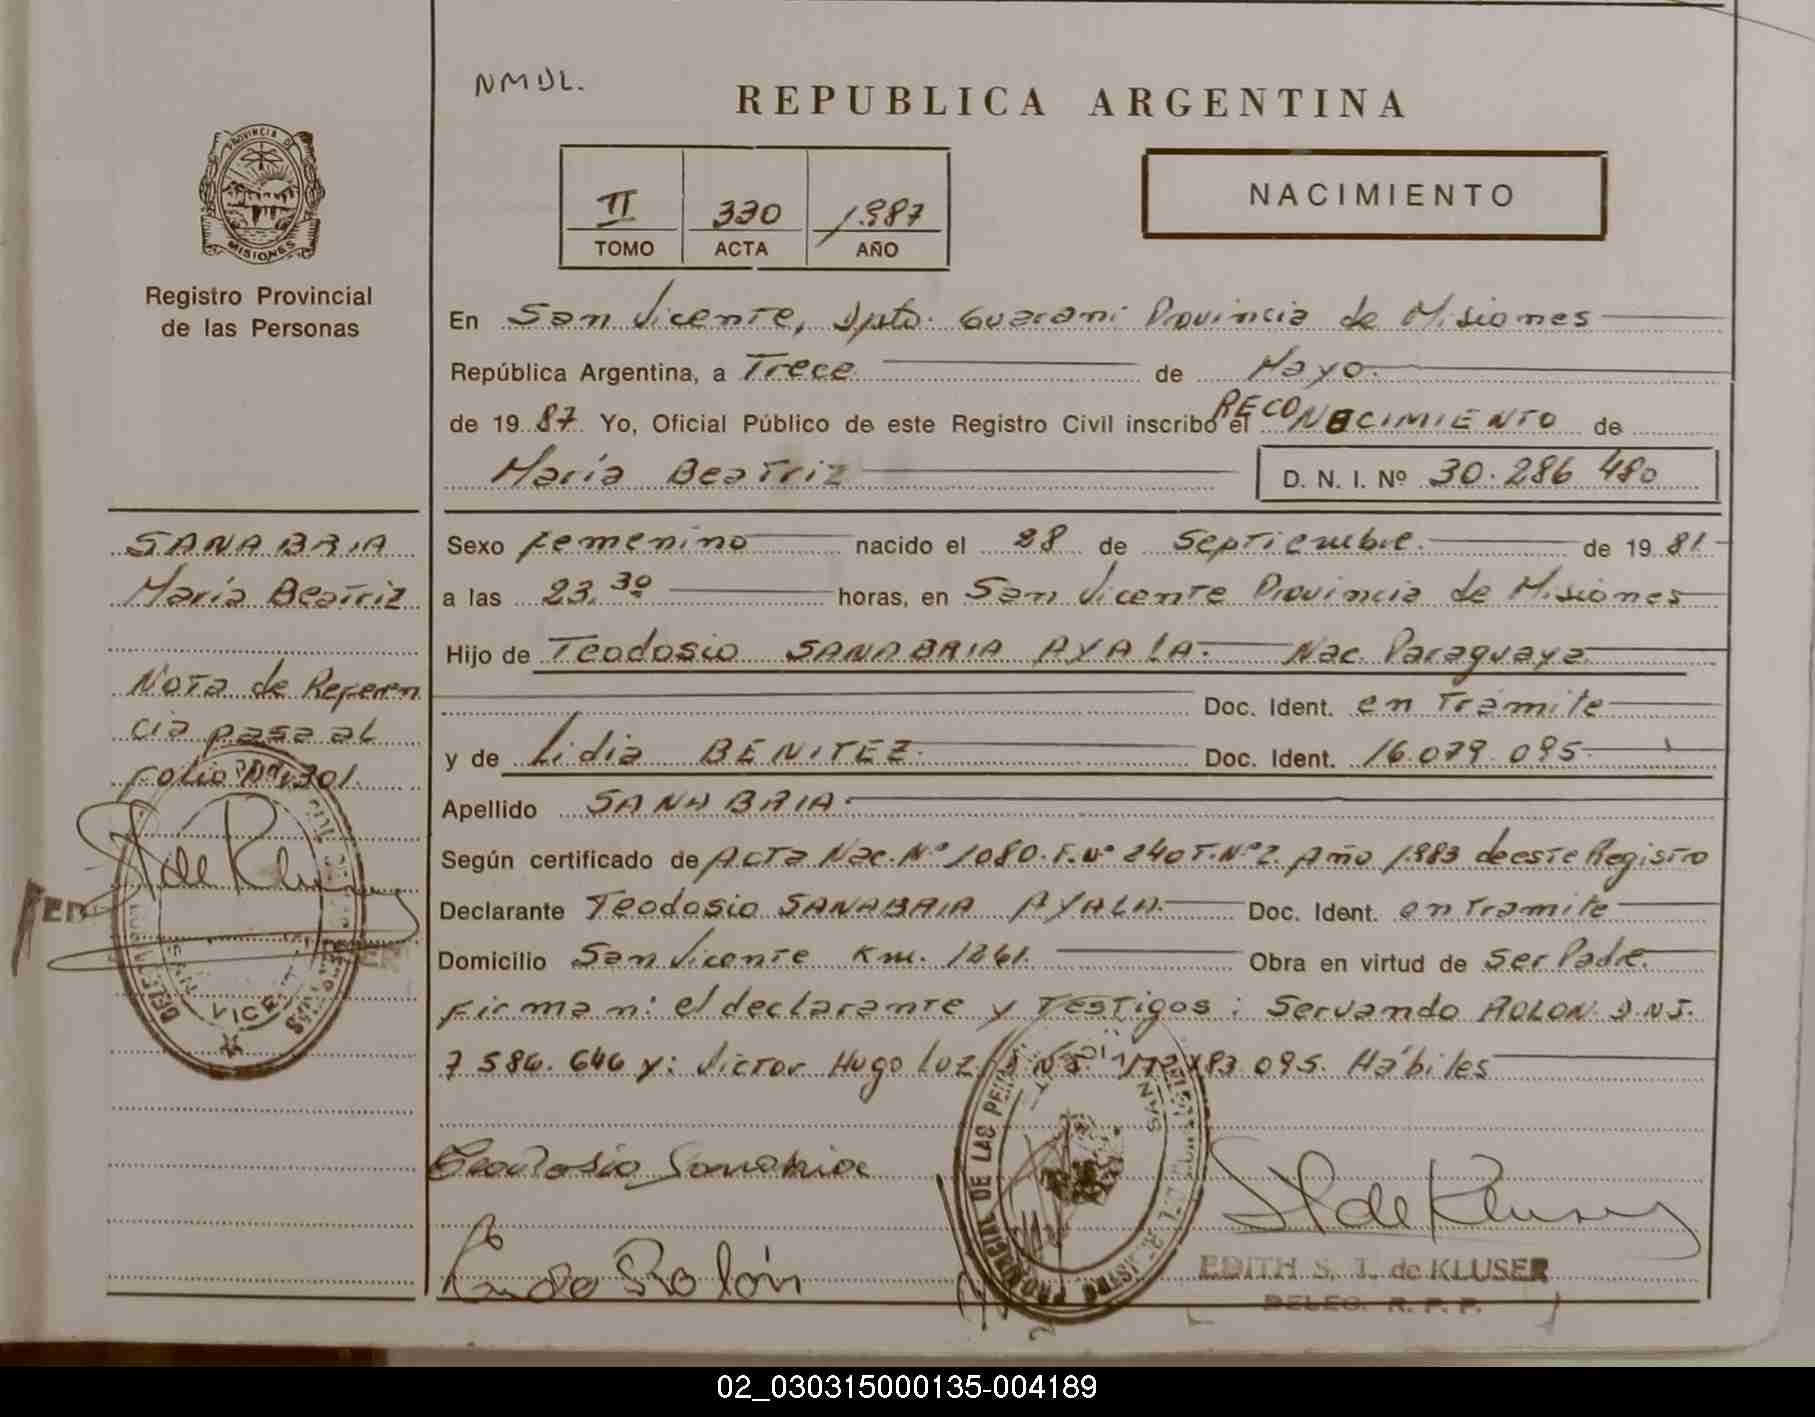 NMDL.
REPUBLICA ARGENTINA
PROVINCIA DE
MISIONES
II 330 1.987
TOMO ACTA AÑO
NACIMIENTO
Registro Provincial
de las Personas
En San Vicente, Dpto. Guaraní Provincia de Misiones
República Argentina, a Trece de Mayo.
de 19 87 Yo, Oficial Público de este Registro Civil inscribo el RECONOCIMIENTO de
María Beatriz D. N. I. Nº 30.286 480
SANABRIA
María Beatriz
Nota de Referen
cia pasa al
Folio Nº 301.
Sexo femenino nacido el 28 de Septiembre. de 19 81
a las 23.30 horas, en San Vicente Provincia de Misiones
Hijo de Teodosio SANABRIA AYALA. Nac. Paraguaya
Doc. Ident. en Trámite
y de Lidia BENITEZ. Doc. Ident. 16.079.095
Apellido SANABRIA.
Según certificado de Acta Nac. Nº 1080. F. Nº 240 T. Nº 2. Año 1.983 de este Registro
Declarante Teodosio SANABRIA AYALA. Doc. Ident. en Tramite
Domicilio San Vicente Km. 1261. Obra en virtud de ser Padre.
Firman: el declarante y Testigos: Servando ROLON D.N.I.
7 586. 646 y: Victor Hugo Luz 095. Hábiles
Teodosio Sanabria
Rolón
PROVINCIAL DE LAS
EDITH S. I. de KLUSER
DELEG. R. P. P.
02_030315000135-004189